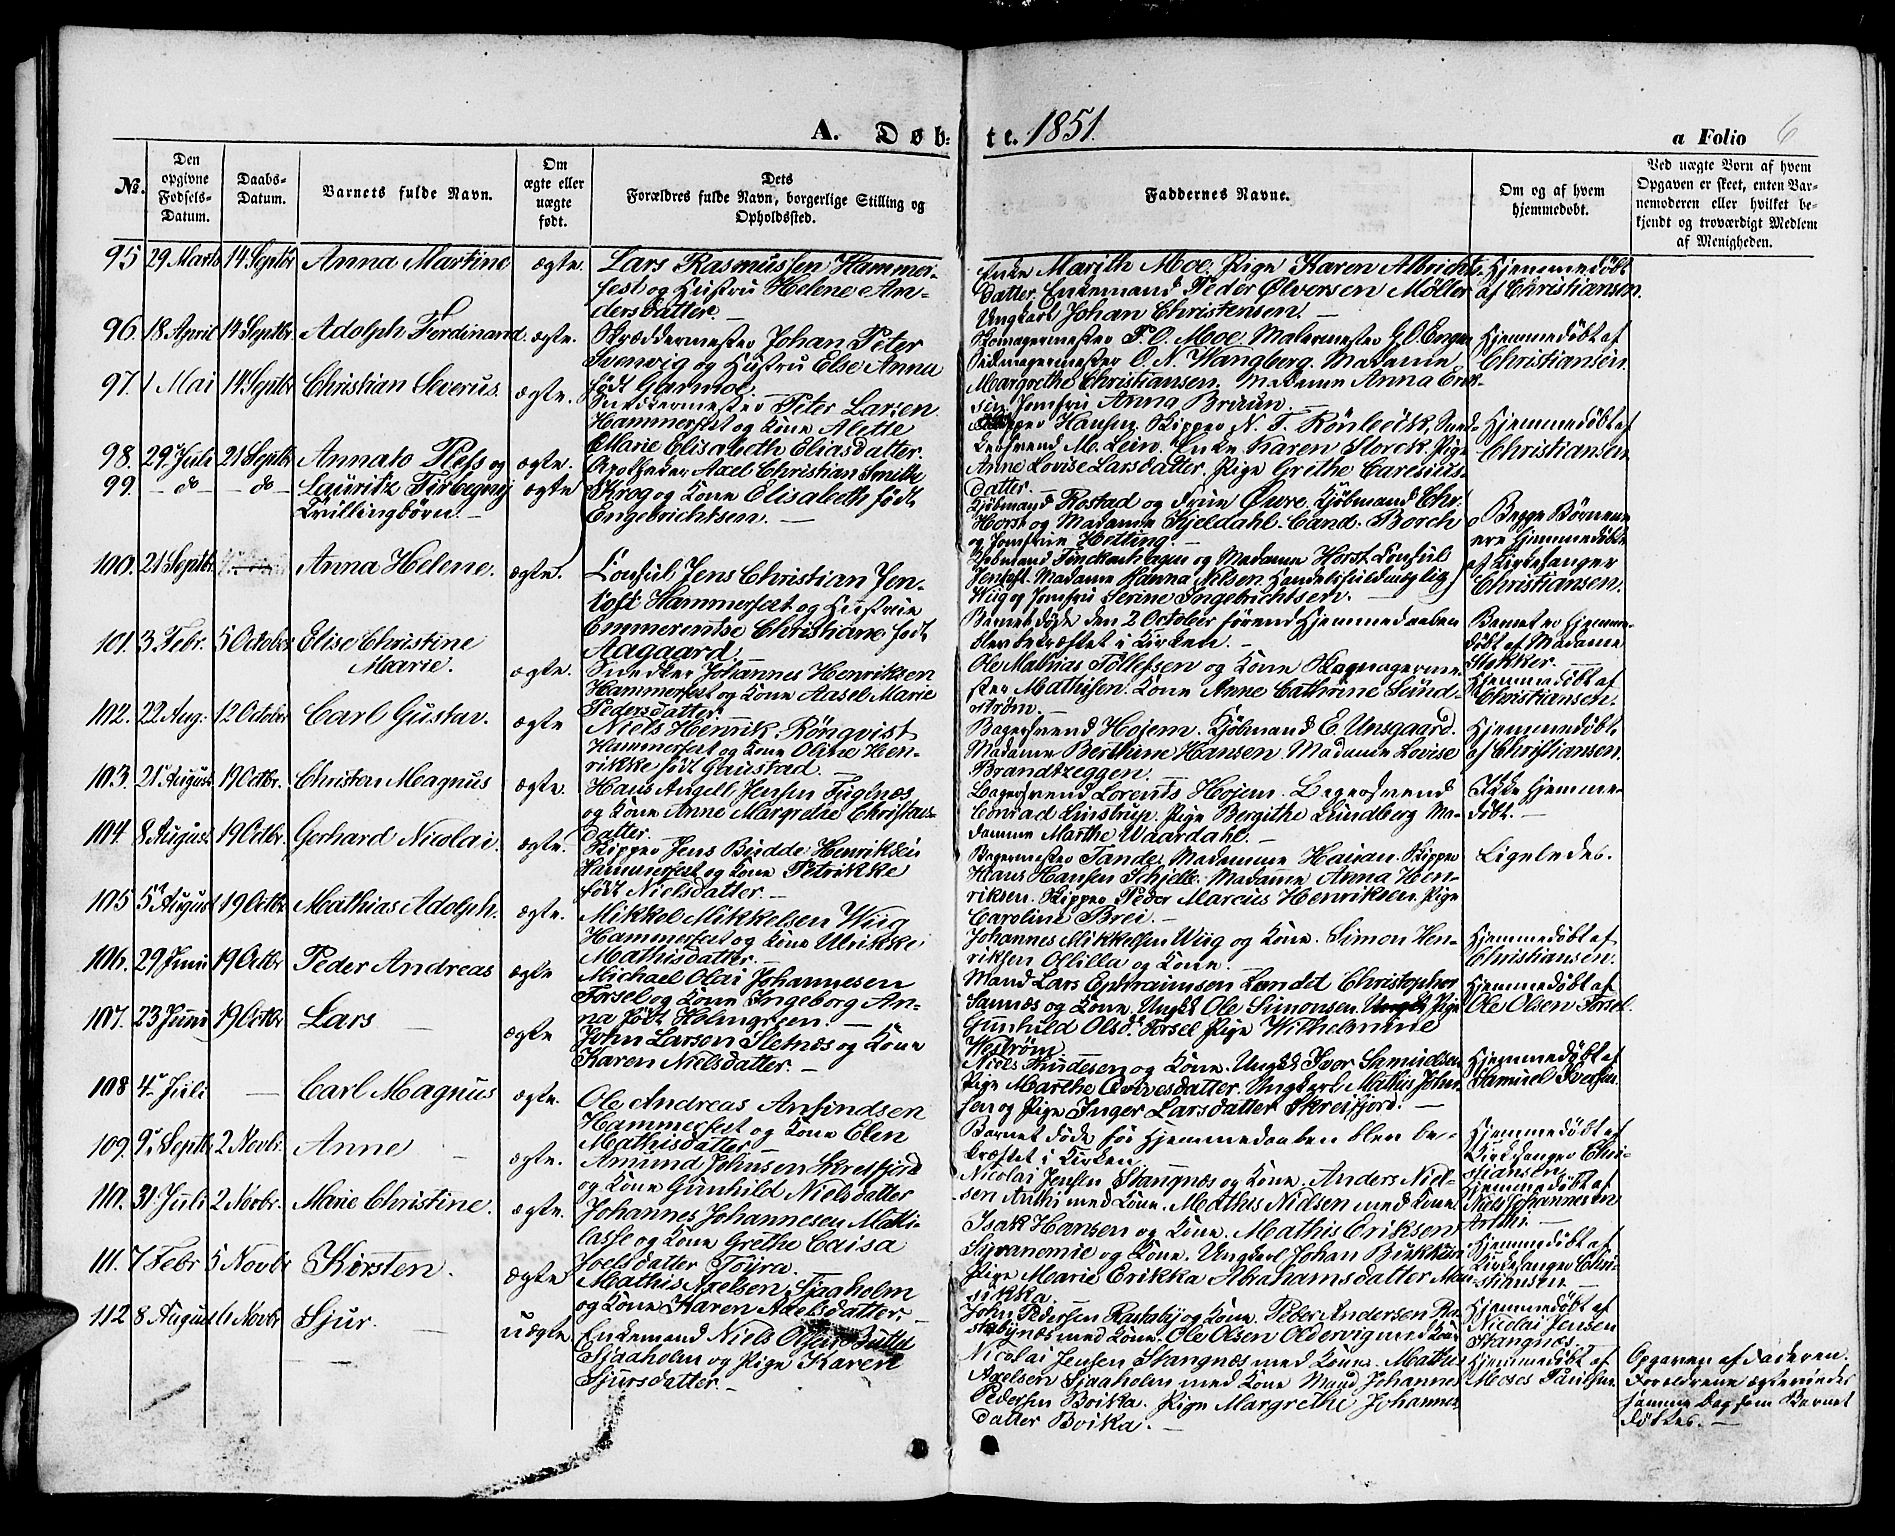 A. Døb-te. 1851.
a Folio 6
No.
Den opgivne Fødsels-Datum.
Daabs-Datum.
Barnets fulde Navn.
Om ægte eller uægte født.
Dets Forældres fulde Navn, borgerlige Stilling og Opholdssted.
Faddernes Navne.
Om og af hvem hjemmedøbt.
Ved uægte Børn af hvem Opgaven er skeet, enten Barnemoderen eller hvilket bekjendt og troværdigt Medlem af Menigheden.
95 29 Marts 14 Septbr Anna Martine ægte.
Lars Rasmussen Hammer-
fest og Hustru Helene An-
dersdatter.
Enke Marith Moe. Pige Karen Albrichts-
datter. Enkemand Peder Ølversen Möller
Ungkarl Johan Christensen.
Hjemmedøbt
af Christiansen.
96. 18 April 14 Septbr. Adolph Ferdinand. ægte.
Skræddermester Johan Peter
Svenvig og Hustru Else Anna
født Garmoe.
Skomagermester P. O. Moe. Malermester G. O. Engen
O. N. Wangberg. Madame
Margrethe Christiansen. Madame Anna Erik-
sen. Jomfru Anna Bruun.
Hjemmedøbt af
Christiansen.
97. 1 Mai 14 Septbr Christian Severus. ægte.
Snedkermester Peter Larsen
Hammerfest og Kone Alette
Marie Elisabeth Eliasdatter.
Skipper Hansen. Skipper N. T. Rönbeck. Sned-
kersvend M. Lein. Enke Karen Storck. Pige
Anne Lovise Larsdatter. Pige Grethe Carelius
datter.
Hjemmedøbt af
Christiansen
98. 29 Juli 21 Septbr Annato Pless og ægte.
99. - do - - do - Lauritz Torbegny ægte
Tvillingbørn.
Apotheker Axel Christian Smith
Krog og Kone Elisabeth født
Engebrichtsen.
Kjøbmand Rostad og Frue Øwre. Kjøbmand Chr.
Horst og Madame Kjeldahl. Cand. Borch
og Jomfrue Hetting.
Begge Børnene
ere hjemmedøbte
af Kirkesanger
Christiansen.
100. 21 Septbr. Anna Helene. ægte.
Consul Jens Christian Jen-
toft Hammerfest og Hustrue
Emmerentse Christiane født
Aagaard.
Kjøbmand Finckenhagen og Madamme Horst. Consul
Jentoft. Madame Hanna Nilsen. Handelsfuldmægtig
Wiig og Jomfru Serine Ingebrichtsen.
Barnet døde den 2 October førend Hjemmedaaben
blev bekræftet i Kirken.
Barnet er hjemme-
døbt af Madame
Stokker.
101. 3 Febr. 5 October Elise Christine
Marie. ægte.
Snedker Johannes Henriksen
Hammerfest og Kone Aasel Marie
Pedersdatter.
Ole Mathias Tollefsen og Kone. Skomagerme-
ster Mathisen. Kone Anne Cathrine Sund-
ström.
Hjemmedøbt af
Christiansen.
102. 22 Aug. 12 October Carl Gustav. ægte
Niels Henrik Rönqvist
Hammerfest og Kone Oline Hen-
rikke født Gaustad.
Bagersvend Hojem. Kjøbmand E. Unsgaard.
Madamme Berthine Hansen. Madamme Lovise
Brandtzeggen.
Hjemmedøbt
af Christiansen.
103. 21 August 19 Octbr. Christen Magnus ægte.
Hans Angell Jensen Fuglnæs
og Kone Anne Margrethe Christians-
datter.
Bagersvend Lorents Hojem. Bagersvend
Conrad Linstrup. Pige Bergithe Lundberg. Ma-
damme Marthe Waardahl.
Ikke Hjemme-
døbt.
104. 8 August 19 Octbr. Gerhard Nicolai. ægte.
Skipper Jens Budde Henriksen
Hammerfest og Kone Petrikke
født Nielsdatter.
Bagermester Tande. Madamme Hauan. Skipper
Hans Hansen Schjelle. Madamme Anna Hen-
riksen. Skipper Peder Marcus Henriksen. Pige
Caroline Brei.
Ligeledes.
105 5 August 19 Octbr Mathias Adolph. ægte.
Mikkel Mikkelsen Wiig
Hammerfest og Kone Ulrikke
Mathisdatter.
Johannes Mikkelsen Wiig og Kone. Simon Hen-
riksen Ollilla og Kone.
Hjemmedøbt af
Christiansen.
106. 29 Juni 19 Octbr Peder Andreas ægte
Michael Olai Johannesen
Forsel og Kone Ingeborg An-
na født Holmgreen.
Mand Lars Ephraimsen Landet Christopher
Sannæs og Kone. Ungk Ole Simonsen. Pige
Gunhild Olsd. Forsel Pige Wilhelmine
Weström
Hjemmedøbt af
Ole Olsen Forsel.
107. 23 Juni 19 Octbr Lars ægte
John Larsen Sletnæs og Kone
Karen Nielsdatter.
Niels Knudsen og Kone. Ungk Iver Samuelsen
Pige Marthe Qvivesdatter. Ungkarl Mathis John-
sen og Pige Inger Larsdatter Skreifjord.
Hjemmedøbt af
Samuel Iversen.
108 4 Juli Carl Magnus ægte.
Ole Andreas Anfindsen
Hammerfest og Kone Elen
Mathisdatter.
Barnet døde før Hjemmedaaben blev be-
kræftet i Kirken.
Hjemmedøbt af
Kirkesanger Chri-
stiansen.
109. 9 Septbr 2 Novbr. Anne ægte.
Amund Johnsen Skreifjord
og Kone Gunhild Nielsdatter
Nicolai Jensen Stangnæs og Kone. Anders Niel-
sen Anthi med Kone. Mathis Nielsen med Kone
Hjemmedøbt af
Niels Johannesen
Anthi.
110. 31 Juli 2 Novbr. Marie Christine. ægte.
Johannes Johannesen Mati-
lasse og Kone Grethe Caisa
Joelsdatter Töyra.
Isak Hansen og Kone. Mathis Eriksen
og Kone. Ungkarl Johan
Pige Marie Erikka Abrahamsdatter
Hjemmedøbt af
Kirkesanger Chri-
stiansen
111. 7 Febr 5 Novbr Kirsten. ægte
Mathis Axelsen Sjaaholm
og Kone Karen Axelsdatter.
John Pedersen Rastaby og Kone. Peder Andersen Ra-
stabynæs med Kone. Ole Olsen Oldervig med Kone
Hjemmedøbt af
Nicolai Jensen
Stangnæs.
112 8 August 6 Novbr Sjur. uægte
Enkemand Niels Olsen
Sjaaholm og Pige Karen
Sjursdatter.
Nicolai Jensen Stangnæs med Kone. Mathis
Axelsen Sjaaholm med Kone Mand Johannes
Pedersen Boika. Pige Margrethe Johannes
datter Boika.
Hjemmedøbt af
Moses Paulsen.
Opgaven af Faderen.
Forældrene ægteviedes
samme Dag som Barnet
døbtes.